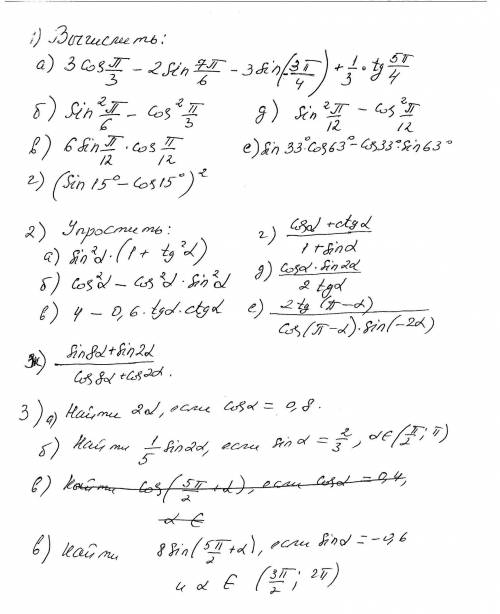 1) Вычислить:
а) 3 cos π/3 − 2 sin 7π/6 − 3 sin(−3π/4) + 1/3 · tg 5π/4
б) sin² π/6 − cos² π/3
д) sin² π/12 − cos² π/12
в) 6 sin π/12 · cos π/12
е) sin 33° · cos 63° − cos 33° · sin 63°
г) (sin 15° − cos 15°)²
2) Упростить:
а) sin²α · (1 + tg²α)
г) (cosα + ctgα)/(1 + sinα)
б) cos²α − cos²α · sin²α
д) (cosα · sin2α)/(2 tgα)
в) 4 − 0,6 · tgα · ctgα
е) (2 tg(π−α))/(cos(π−α) · sin(−2α))
ж) (sin8α + sin2α)/(cos8α + cos2α).
3) а) Найти 2α, если cosα = 0,8.
б) Найти 1/5 sin2α, если sinα = 2/3, α ∈ (π/2; π)
в) Найти cos(5π/2 + α), если cosα = 0,4,
α ∈
в) Найти 8 sin(5π/2 + α), если sinα = −0,6
и α ∈ (3π/2; 2π)